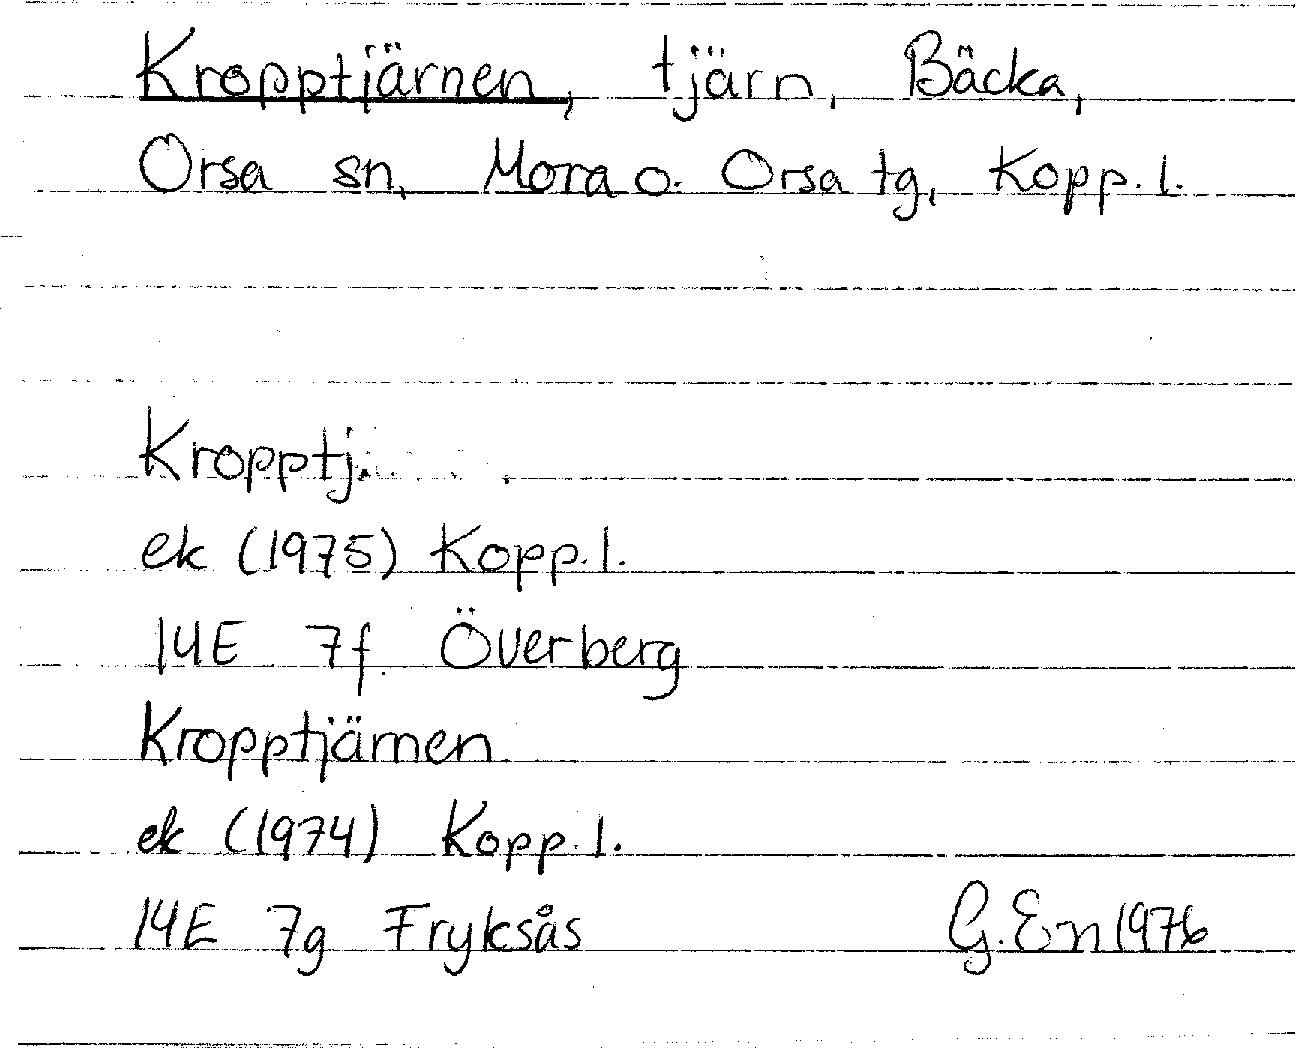 Kropptjärnen, tjärn, Bäcka,
Orsa sn, Mora o. Orsa tg, Kopp. l.
Kropptj.
ek (1975) Kopp. l.
14E 7f Överberg
Kropptjärnen
ek (1974) Kopp. l.
14E 7g Fryksås G. En 1976